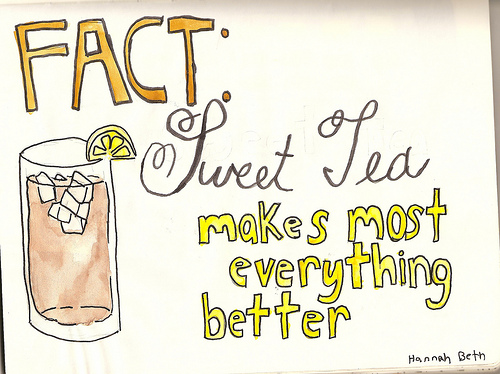 FACT:
Sweet Tea
makes most
everything
better
Hannah Beth